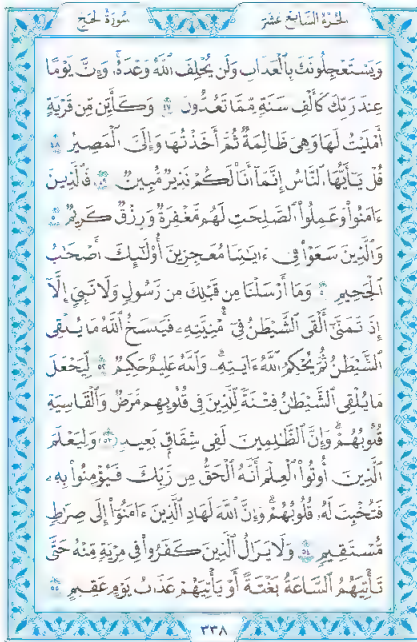 سُورَةُ الحَجِّ
الجُزْءُ السَّابِعَ عَشَرَ
وَيَسْتَعْجِلُونَكَ بِالْعَذَابِ وَلَن يُخْلِفَ ٱللَّهُ وَعْدَهُۥ وَإِنَّ يَوْمًا
عِندَ رَبِّكَ كَأَلْفِ سَنَةٍ مِّمَّا تَعُدُّونَ ٤٧ وَكَأَيِّن مِّن قَرْيَةٍ
أَمْلَيْتُ لَهَا وَهِىَ ظَالِمَةٌ ثُمَّ أَخَذْتُهَا وَإِلَىَّ ٱلْمَصِيرُ ٤٨
قُلْ يَٰٓأَيُّهَا ٱلنَّاسُ إِنَّمَآ أَنَا۠ لَكُمْ نَذِيرٌ مُّبِينٌ ٤٩ فَٱلَّذِينَ
ءَامَنُوا۟ وَعَمِلُوا۟ ٱلصَّٰلِحَٰتِ لَهُم مَّغْفِرَةٌ وَرِزْقٌ كَرِيمٌ ٥٠
وَٱلَّذِينَ سَعَوْا۟ فِىٓ ءَايَٰتِنَا مُعَٰجِزِينَ أُو۟لَٰٓئِكَ أَصْحَٰبُ
ٱلْجَحِيمِ ٥١ وَمَآ أَرْسَلْنَا مِن قَبْلِكَ مِن رَّسُولٍ وَلَا نَبِىٍّ إِلَّآ
إِذَا تَمَنَّىٰٓ أَلْقَى ٱلشَّيْطَٰنُ فِىٓ أُمْنِيَّتِهِۦ فَيَنسَخُ ٱللَّهُ مَا يُلْقِى
ٱلشَّيْطَٰنُ ثُمَّ يُحْكِمُ ٱللَّهُ ءَايَٰتِهِۦ وَٱللَّهُ عَلِيمٌ حَكِيمٌ ٥٢ لِّيَجْعَلَ
مَا يُلْقِى ٱلشَّيْطَٰنُ فِتْنَةً لِّلَّذِينَ فِى قُلُوبِهِم مَّرَضٌ وَٱلْقَاسِيَةِ
قُلُوبُهُمْ وَإِنَّ ٱلظَّٰلِمِينَ لَفِى شِقَاقٍۭ بَعِيدٍ ٥٣ وَلِيَعْلَمَ
ٱلَّذِينَ أُوتُوا۟ ٱلْعِلْمَ أَنَّهُ ٱلْحَقُّ مِن رَّبِّكَ فَيُؤْمِنُوا۟ بِهِۦ
فَتُخْبِتَ لَهُۥ قُلُوبُهُمْ وَإِنَّ ٱللَّهَ لَهَادِ ٱلَّذِينَ ءَامَنُوٓا۟ إِلَىٰ صِرَٰطٍ
مُّسْتَقِيمٍ ٥٤ وَلَا يَزَالُ ٱلَّذِينَ كَفَرُوا۟ فِى مِرْيَةٍ مِّنْهُ حَتَّىٰ
تَأْتِيَهُمُ ٱلسَّاعَةُ بَغْتَةً أَوْ يَأْتِيَهُمْ عَذَابُ يَوْمٍ عَقِيمٍ ٥٥
٣٣٨